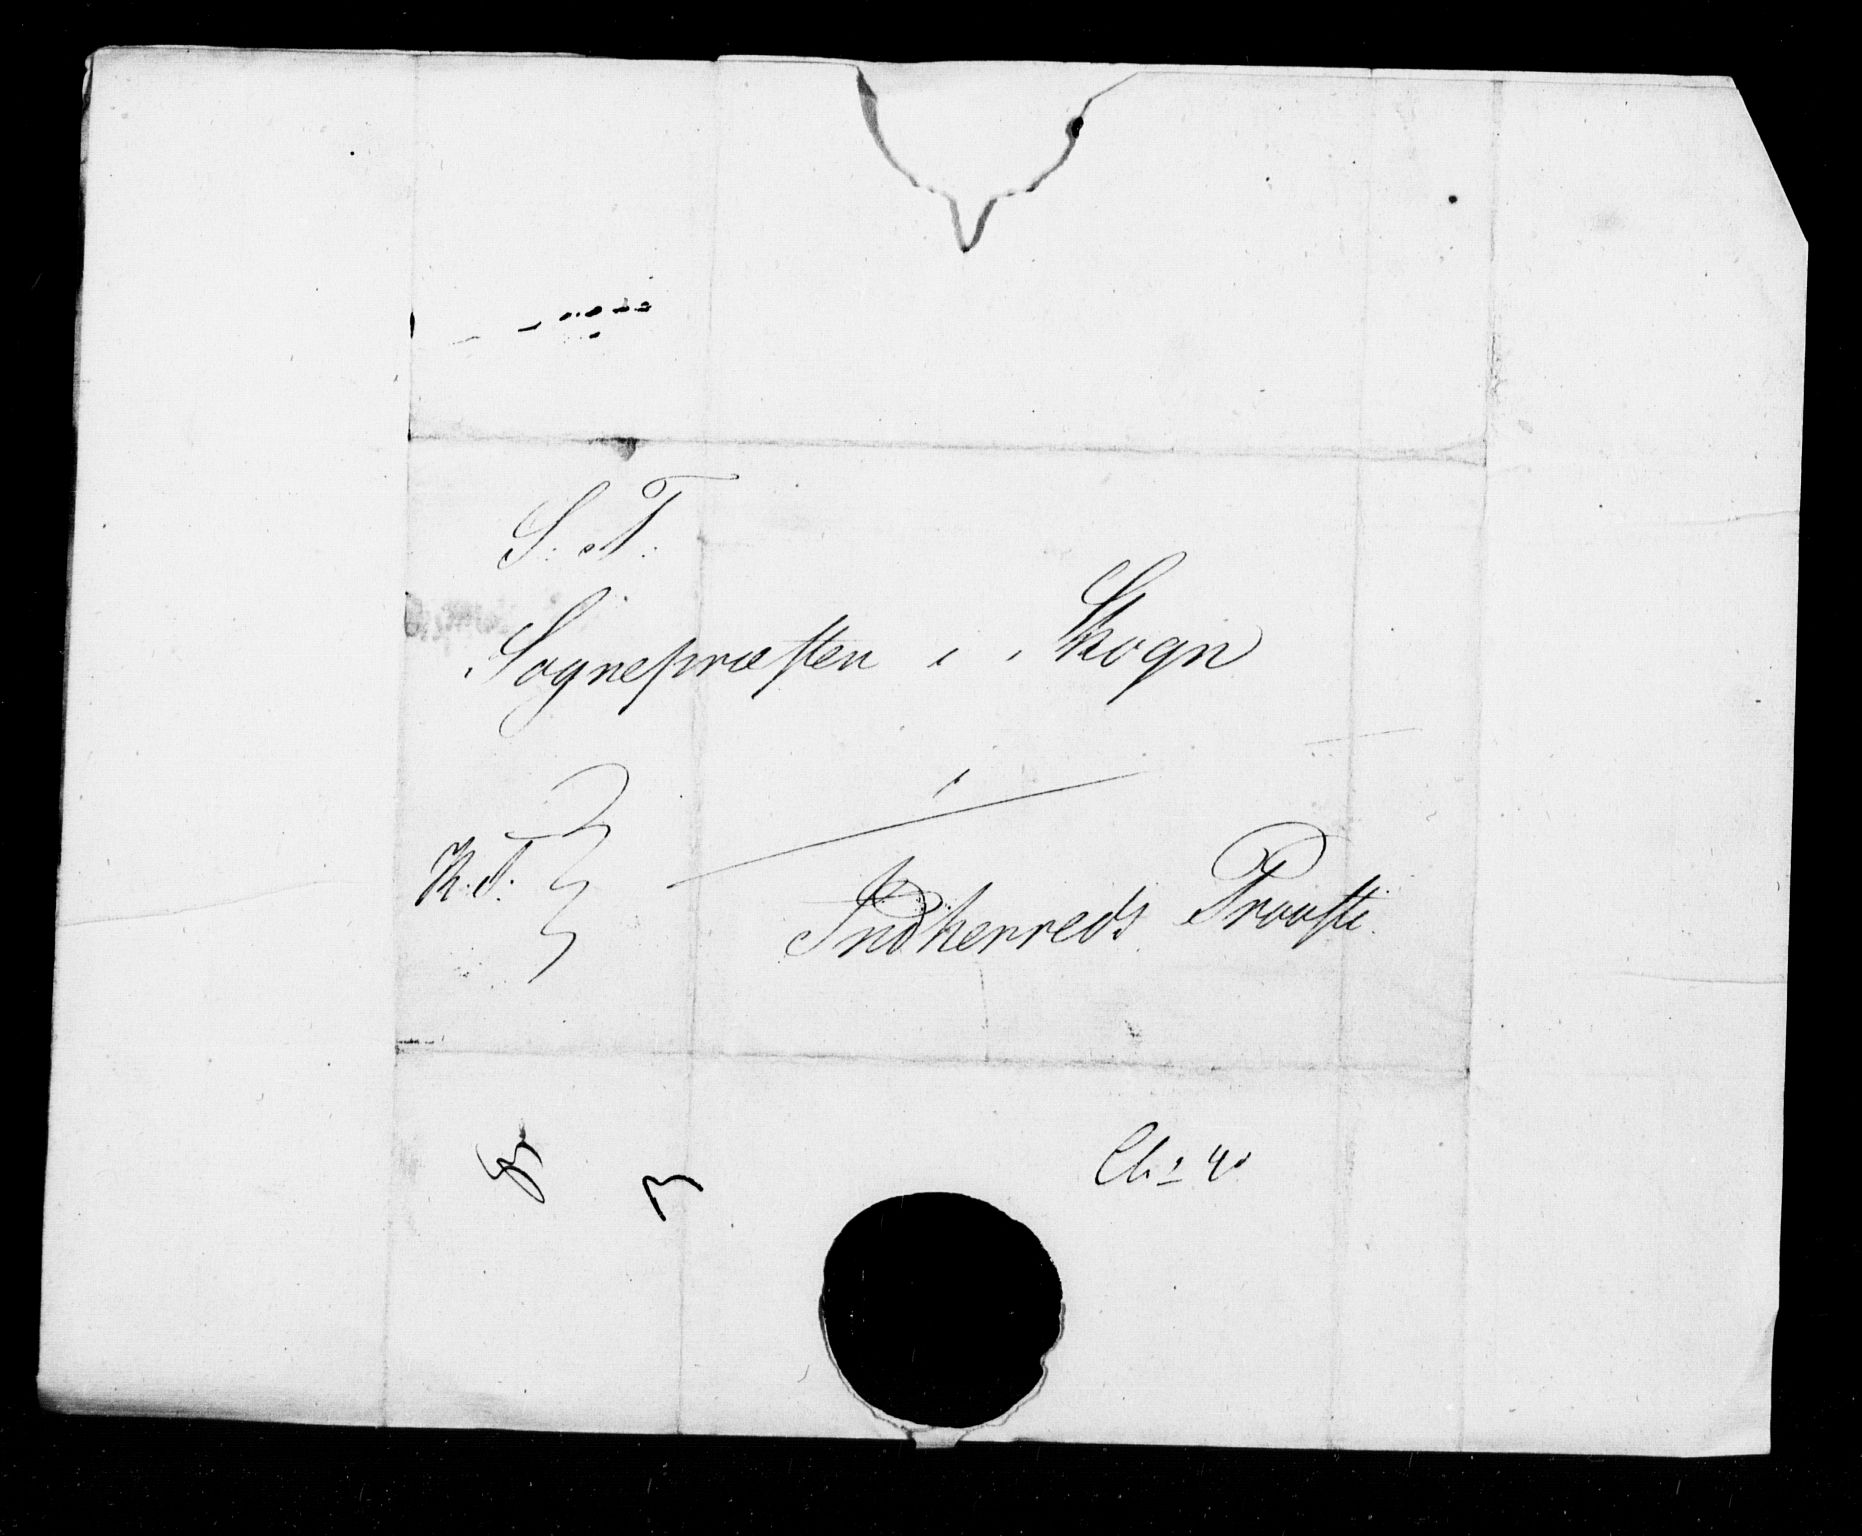 S. T.
Sognepræsten i Skogn
i
K. T.
Indherreds Provsti.